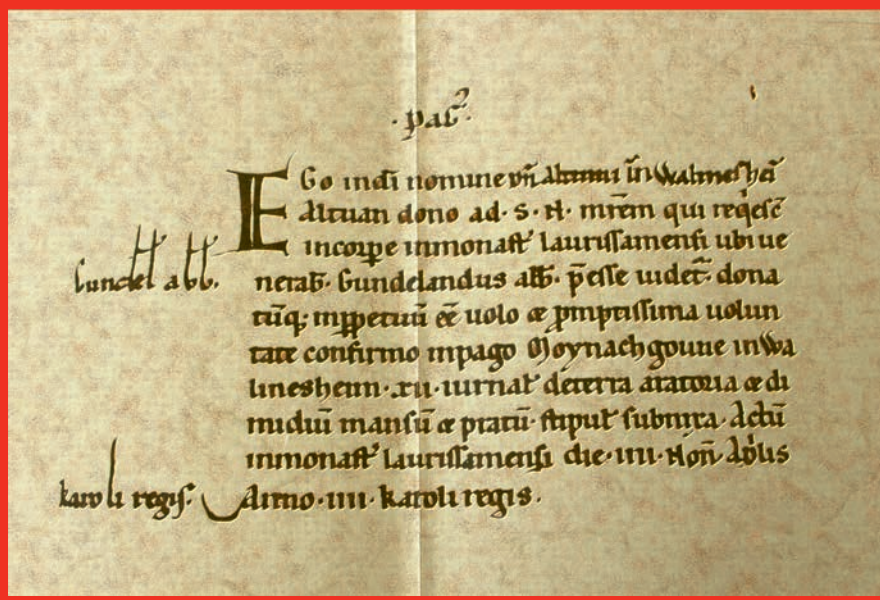 · pas̃ ·
EGo indi nomine
Altuan dono ad · S · N · mr̃em qui req̇esc̃
incorꝑe inmonast̃ laurissamensi ubi ue
nerab̃ · Gundelandus abb̃ · p̃esse uidet̃ · dona
tũq; inꝑpetuũ eẽ uolo ⁊ ꝓmptissima uolun
Gundel abb.
tate confirmo inpago Moynachgouue inWa
linesheim · xii · iurnal̃ deterra aratoria ⁊ di
midiũ mansũ ⁊ pratũ · stipul̃ subnixa · Actũ
inmonast̃ laurissamensi die · iiii · Noñ Ap̃lis
karoli regis. Anno · iiii · karoli regis .